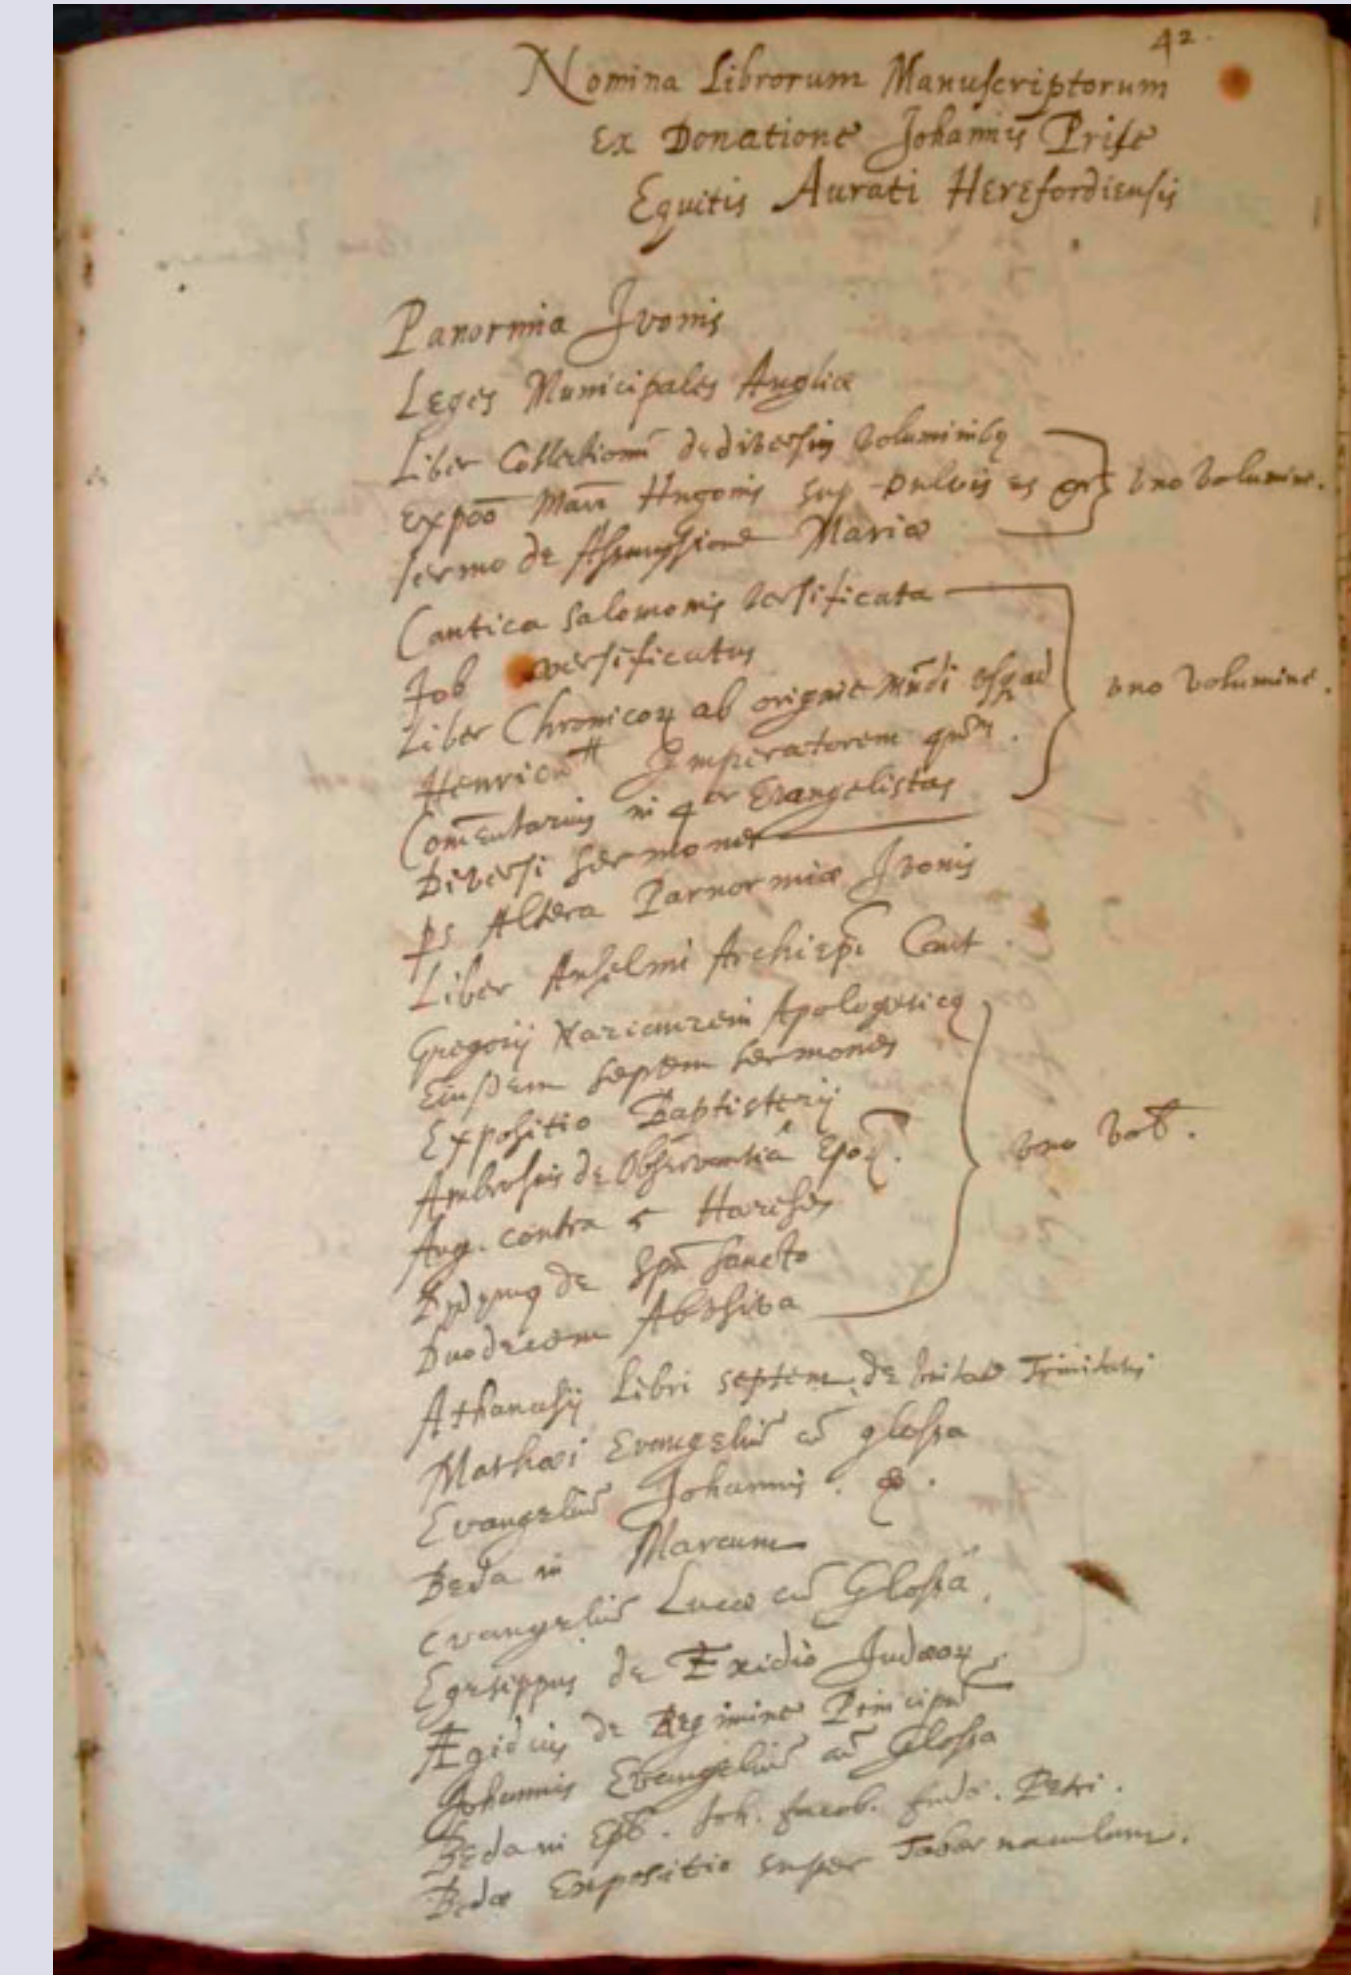 42.
Nomina Librorum Manuscriptorum
Ex Donatione Johannis Prise
Equitis Aurati Herefordiensis
Panormia Ivonis
Leges Municipales Angliæ
Liber Collectionū de diversis voluminibꝫ
Expōō Hugonis sup pulvis es &c uno volumine.
sermo de Assumssione Mariæ
Cantica Salomonis versificata
Job versificatus uno volumine.
Liber Chronicoꝝ ab origine Mūdi usqꝫ ad
Henricū Imperatorem
Comēntarius in 4or Evangelistas
Diversi sermones
ps Altera Parnormiæ Ivonis
Liber Anselmi Archiepī Cant.
Gregorij Nazianzeni Apologeticꝰ
Eiusdem septem sermones
Expositio Baptisterij
Ambrosius de Observantiâ Epōꝝ. uno vol.
Aug. contra 5 Hæreses
Didymꝰ de Spū Sancto
Duodecem Abusiva
Athanasij Libri septem de Unitate Trinitatis
Mathæi Evangeliū cū glossa
Evangeliū Johannis. &.
Beda in Marcum
Evangeliū Lucæ cū Glossa.
Egesippus de Exidio Judæoꝝ.
Ægidius de Regimine Principū
Johannis Evangeliū cū Glossa
Beda in Epl. Joh. Jacob. Judæ. Petri.
Bedæ Expositio super Tabernaculum.